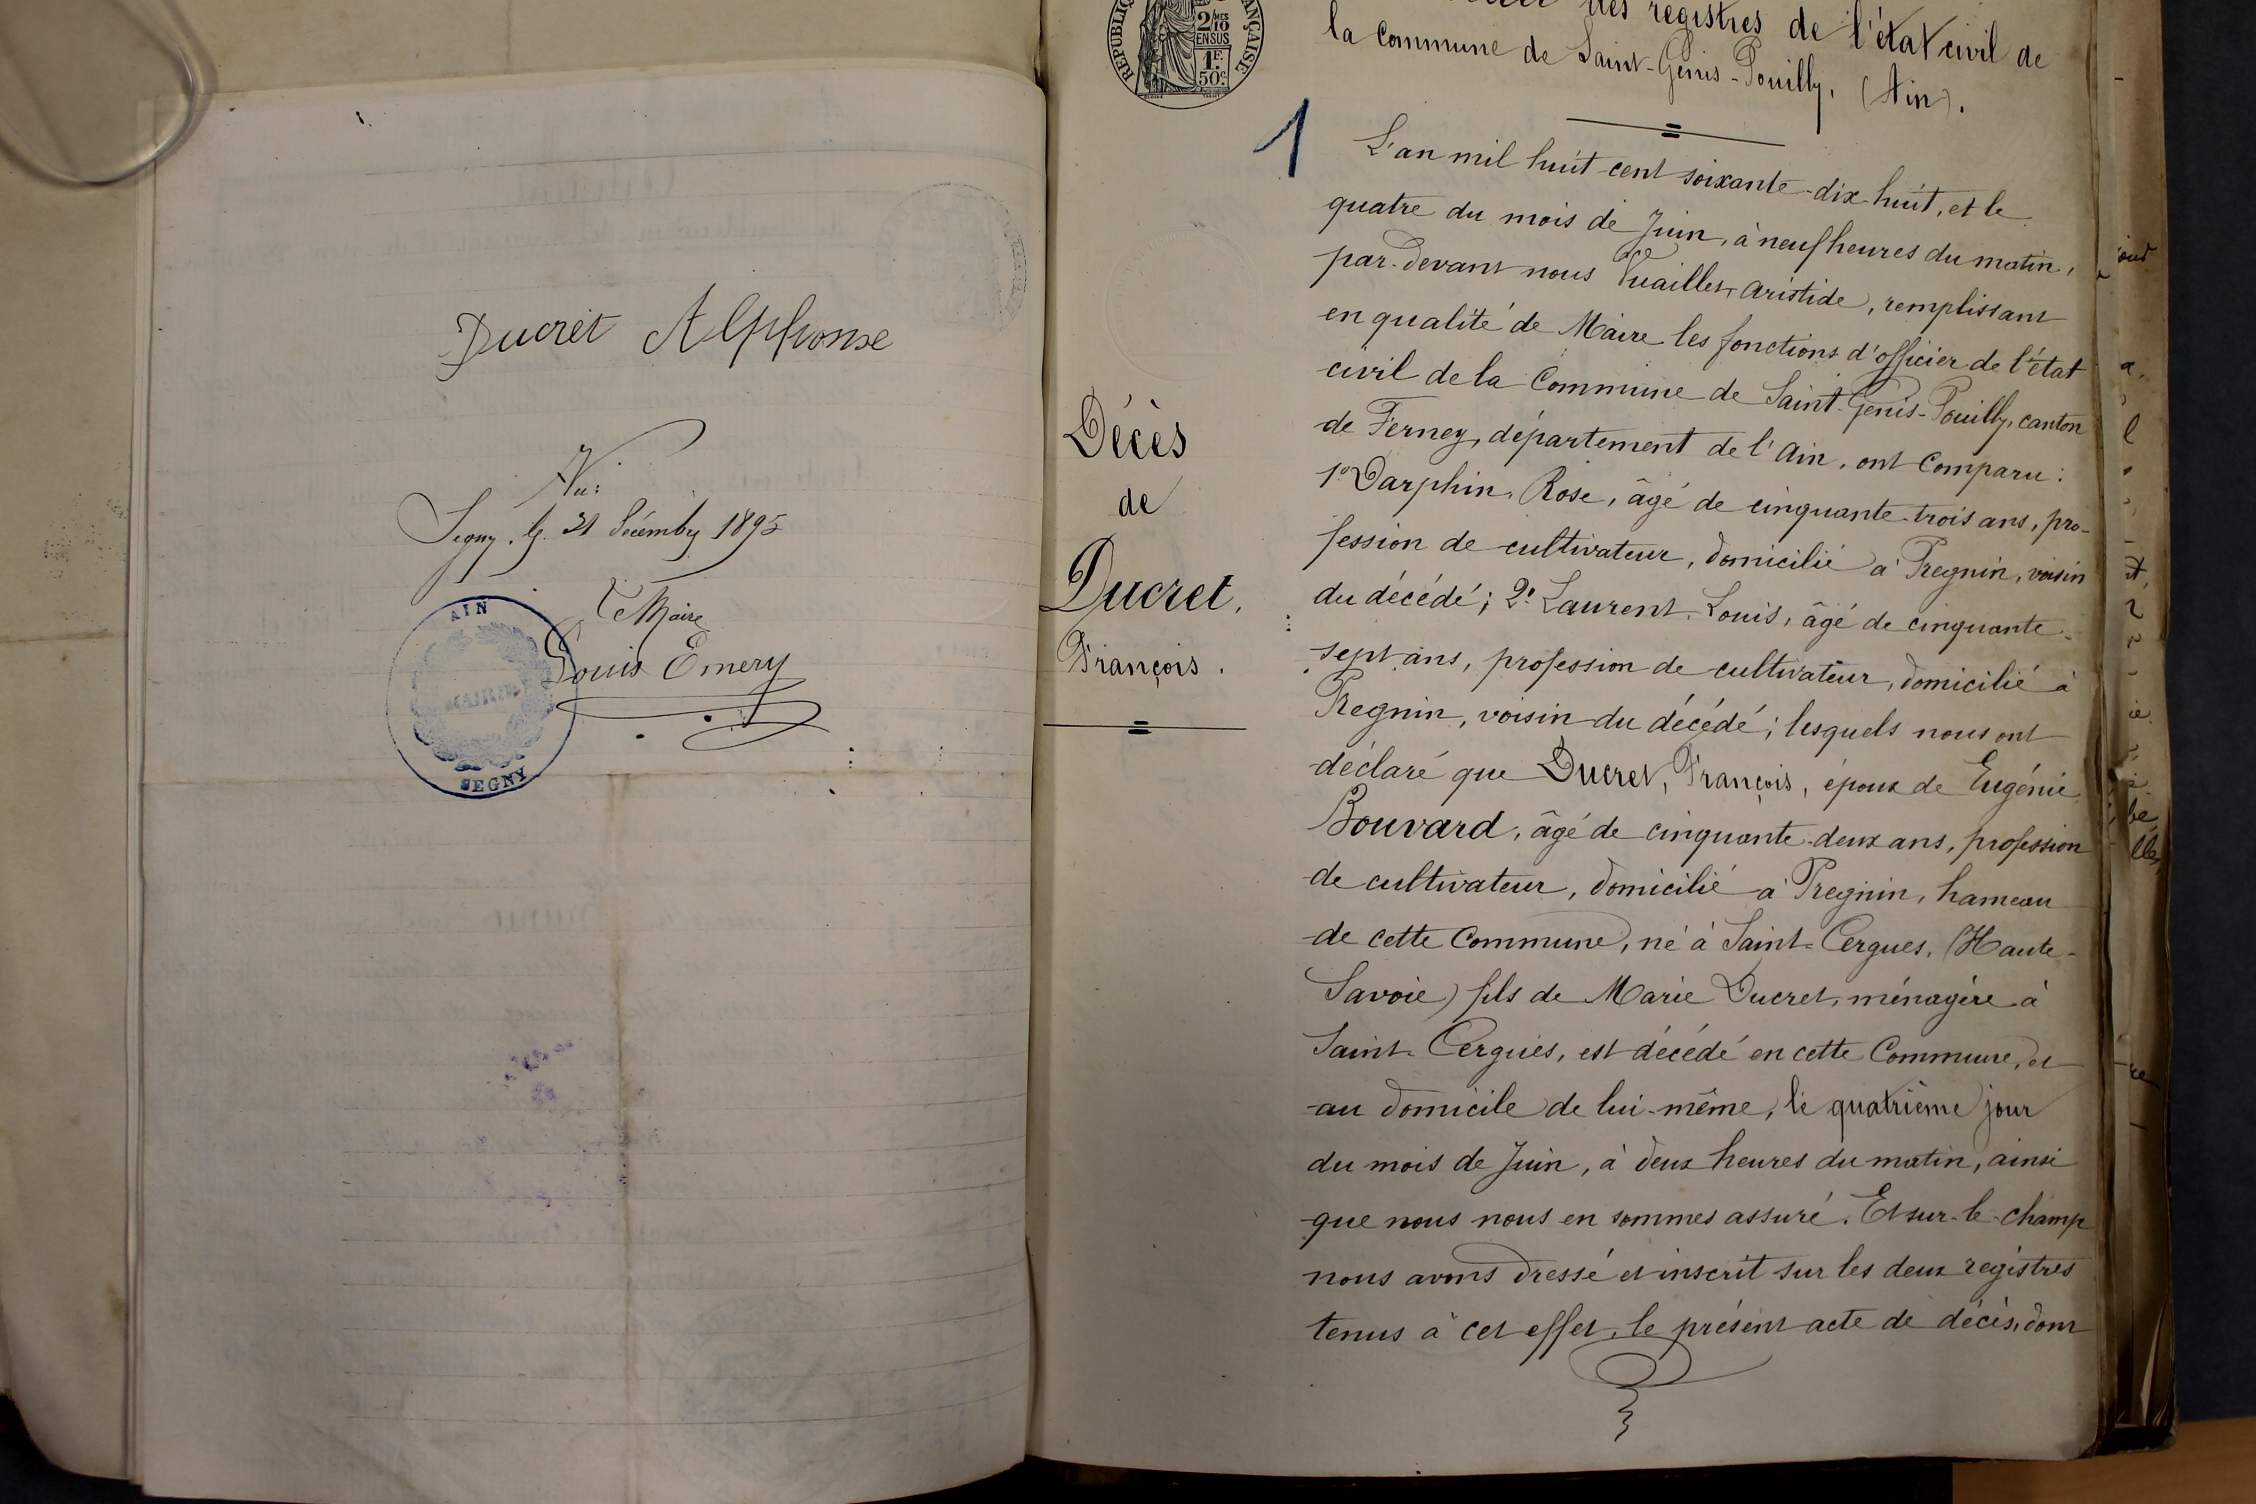 Ducret Alphonse
Vu:
Segny, le 31 Décembre 1895
Le Maire
Louis Emery
AIN
MAIRIE
SEGNY
2/10
EN SUS
1F.
50c.
des registres de l'état civil de
la Commune de Saint-Genis-Pouilly, (Ain).
1
Décès
de
Ducret,
François.
L'an mil huit cent soixante-dix-huit, et le
quatre du mois de Juin, à neuf heures du matin,
par-devant nous Vuaillet, Aristide, remplissant
en qualité de Maire les fonctions d'officier de l'état
civil de la Commune de Saint-Genis-Pouilly, canton
de Ferney, département de l'Ain, ont comparu:
1º Darphin, Rose, âgé de cinquante-trois ans, pro-
fession de cultivateur, domicilié à Pregnin, voisin
du décédé; 2º Laurent, Louis, âgé de cinquante-
sept ans, profession de cultivateur, domicilié à
Pregnin, voisin du décédé; lesquels nous ont
déclaré que Ducret, François, époux de Eugénie
Bouvard, âgé de cinquante-deux ans, profession
de cultivateur, domicilié à Pregnin, hameau
de cette Commune, né à Saint-Cergues, (Haute-
Savoie) fils de Marie Ducret, ménagère à
Saint-Cergues, est décédé en cette Commune, et
au domicile de lui-même, le quatrième jour
du mois de Juin, à deux heures du matin, ainsi
que nous nous en sommes assuré. Et sur-le-champ
nous avons dressé et inscrit sur les deux registres
tenus à cet effet, le présent acte de décès, dont